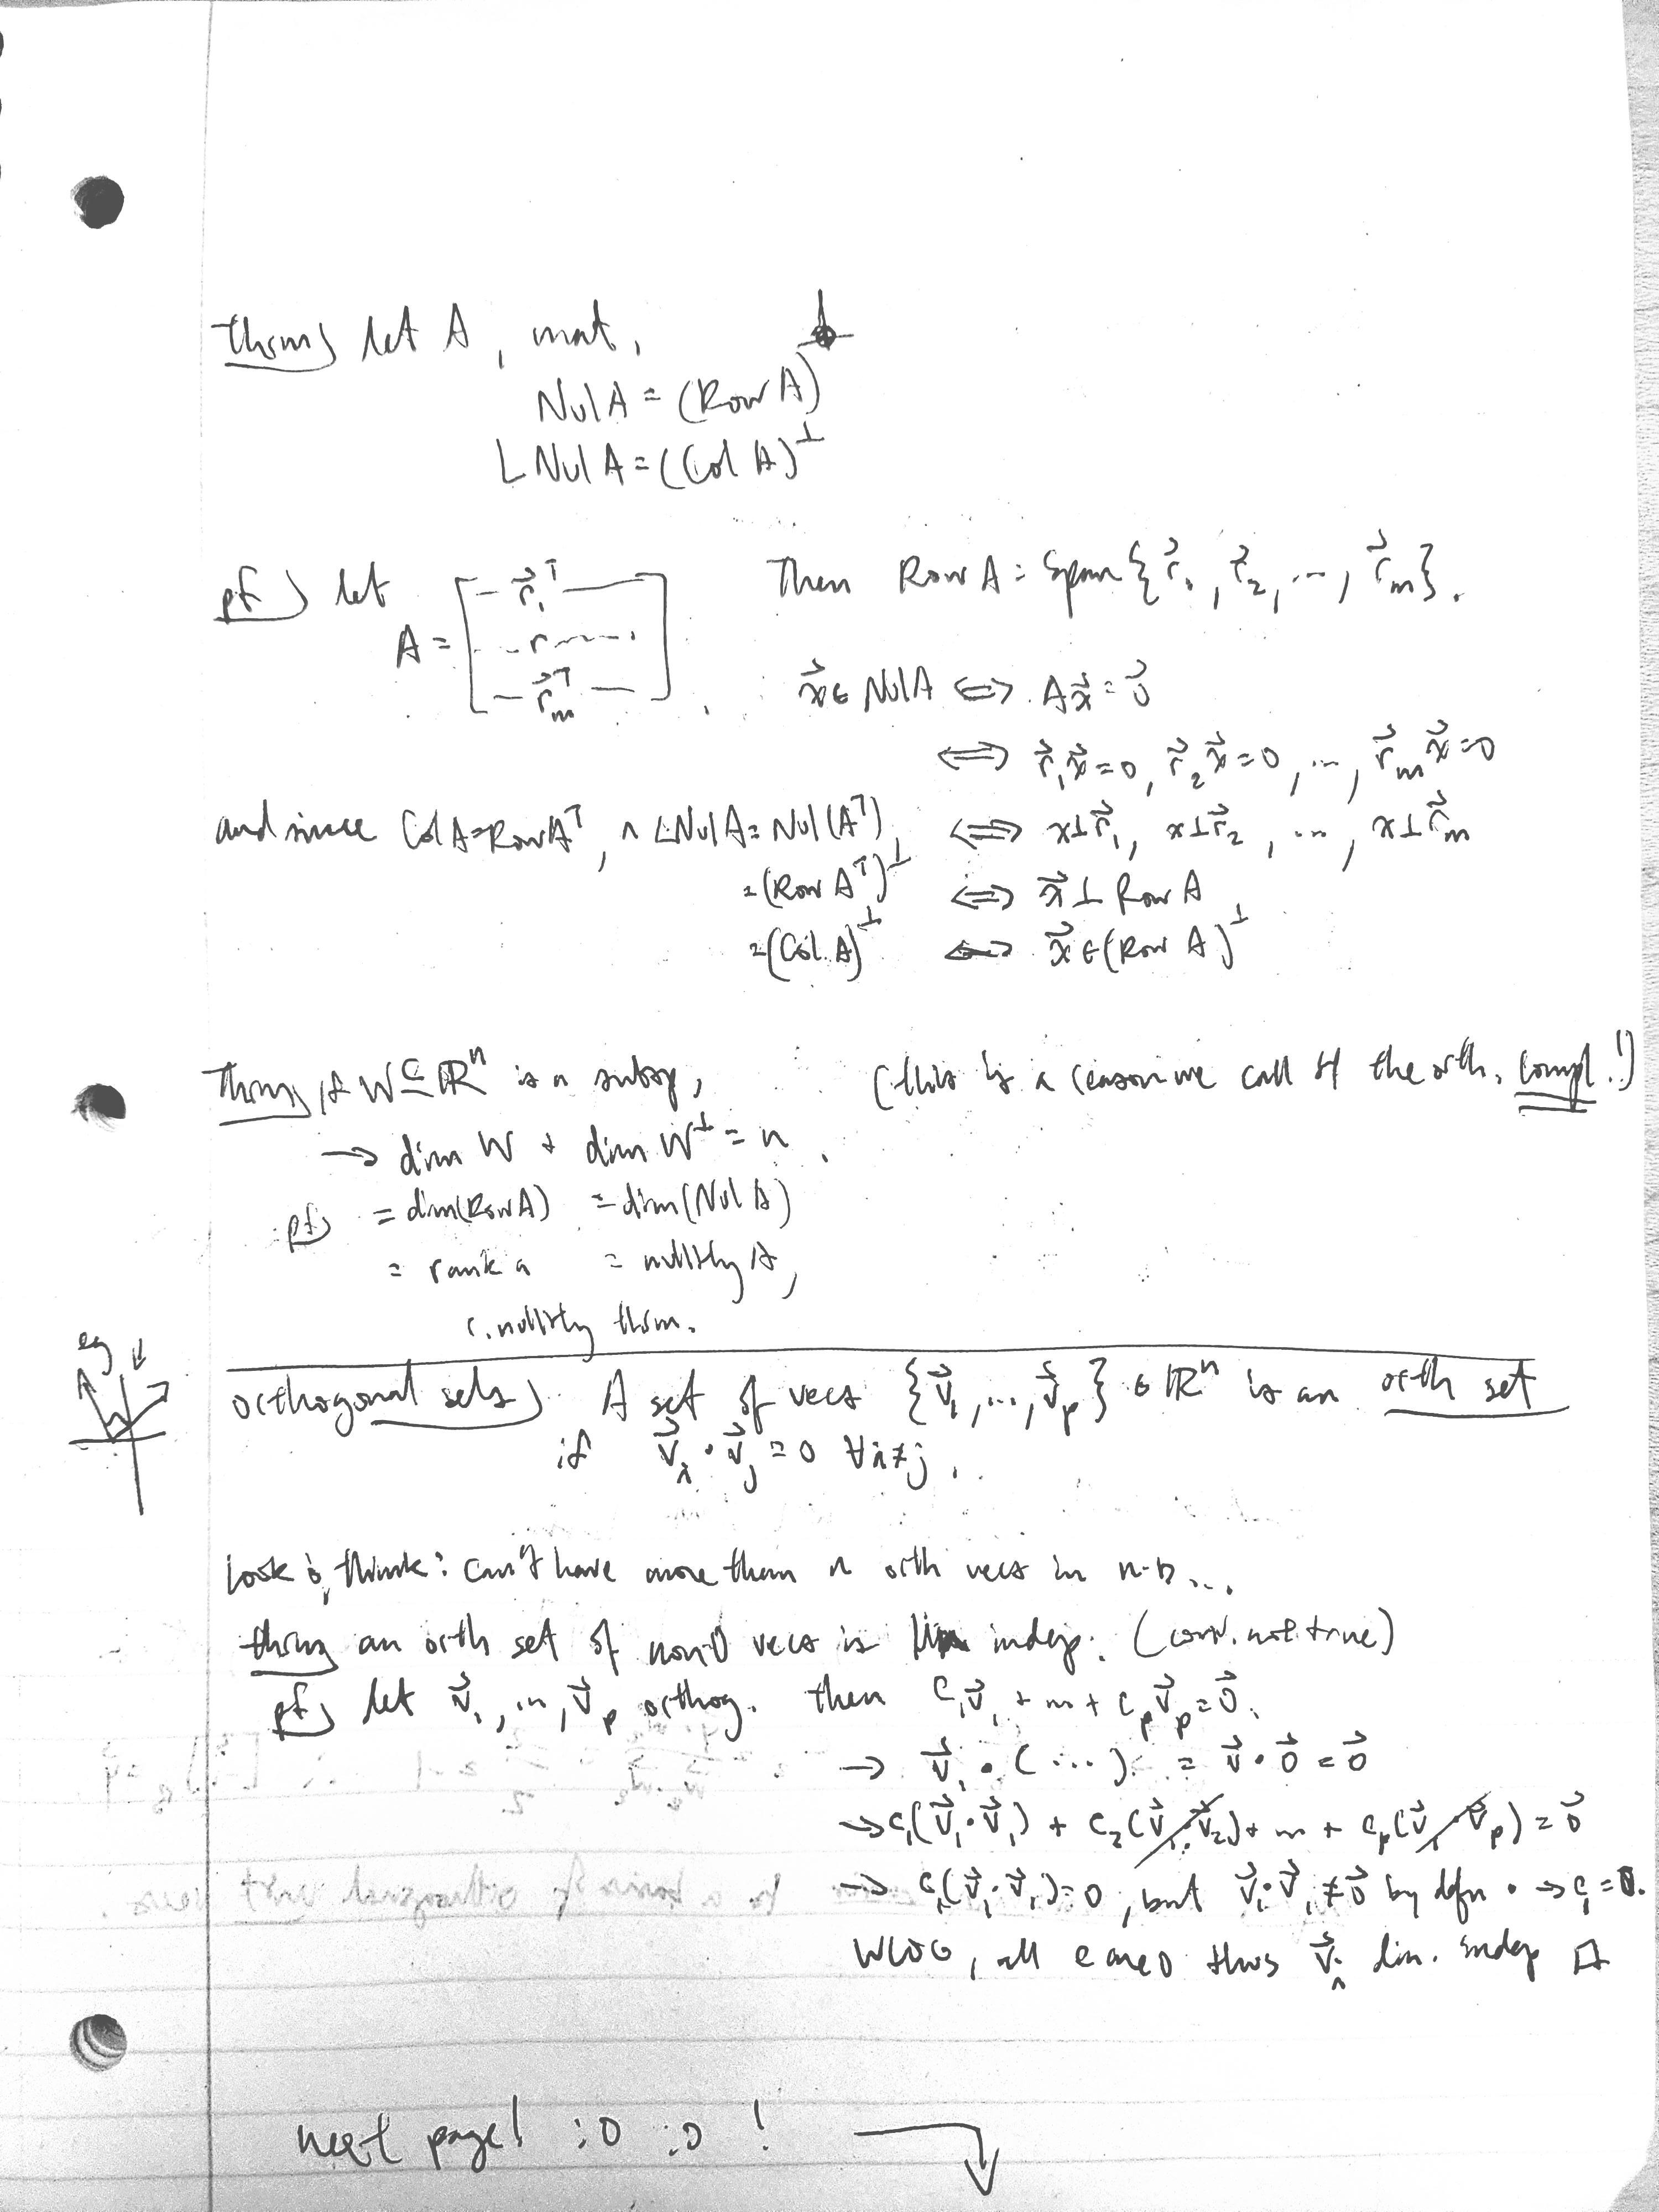 thm) let A, mat,
Nul A = (Row A)⊥
LNul A = (Col A)⊥
pf) let A = [ — r⃗₁ᵀ — ; - - r - - - ; — r⃗ₘᵀ — ]. Then Row A = Span{r⃗₁, r⃗₂, ..., r⃗ₘ}.
x⃗ ∈ Nul A ⟺ Ax⃗ = 0⃗
⟺ r⃗₁x⃗ = 0, r⃗₂x⃗ = 0, ..., r⃗ₘx⃗ = 0
⟺ x⊥r⃗₁, x⊥r⃗₂, ..., x⊥r⃗ₘ
⟺ x⃗ ⊥ Row A
⟺ x⃗ ∈ (Row A)⊥
and since Col A = Row Aᵀ, ∧ LNul A = Nul(Aᵀ)
= (Row Aᵀ)⊥
= (Col A)⊥
thm) if W ⊆ ℝⁿ is a subsp, (this is a reason we call it the orth. compl.!)
→ dim W + dim W⊥ = n.
pf) = dim(Row A) = dim(Nul A)
= rank a = nullity A,
r. nullity thm.
eg
orthogonal sets) A set of vecs {v⃗₁, ..., v⃗ₚ} ∈ ℝⁿ is an orth set
if v⃗ᵢ · v⃗ⱼ = 0 ∀i≠j.
look & think: can't have more than n orth vecs in n-D...
thm) an orth set of non0 vecs is lin indep. (conv. not true)
pf) let v⃗₁, ..., v⃗ₚ orthog. then c₁v⃗₁ + ... + cₚv⃗ₚ = 0⃗.
→ v⃗₁ · (...) = v⃗ · 0⃗ = 0⃗
→ c₁(v⃗₁·v⃗₁) + c₂(v⃗₁·v⃗₂) + ... + cₚ(v⃗₁·v⃗ₚ) = 0⃗
→ c₁(v⃗₁·v⃗₁) = 0, but v⃗₁·v⃗₁ ≠ 0⃗ by dfn. → c₁ = 0.
WLOG, all c are 0 thus v⃗ᵢ lin. indep □
next page! :0 :0 !